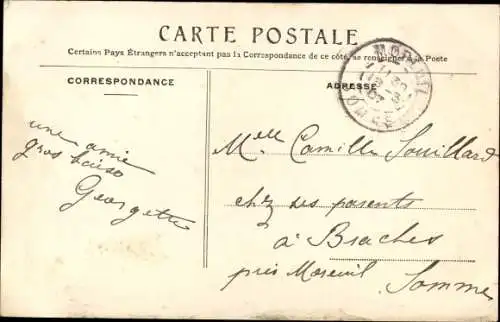 CARTE POSTALE
Certains Pays Étrangers n'acceptant pas la Correspondance de ce côté, se renseigner à la Poste
CORRESPONDANCE
ADRESSE
une amie
gros baiso
Georgette
Melle Camille Souillard
chez ses parents
à Braches
près Moreuil Somme